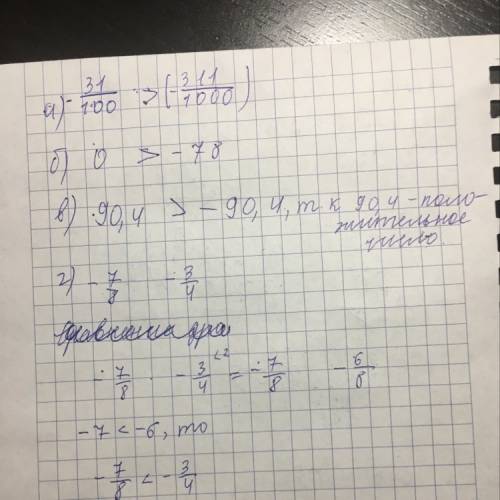 а) -31/100 > (-311/1000)
б) 0 > -78
в) 90,4 > -90,4, т к 90,4 - поло-
жительное
число
г) -7/8 -3/4
-7/8 -3/4 ^(2 = -7/8 -6/8
-7 < -6, то
-7/8 < -3/4